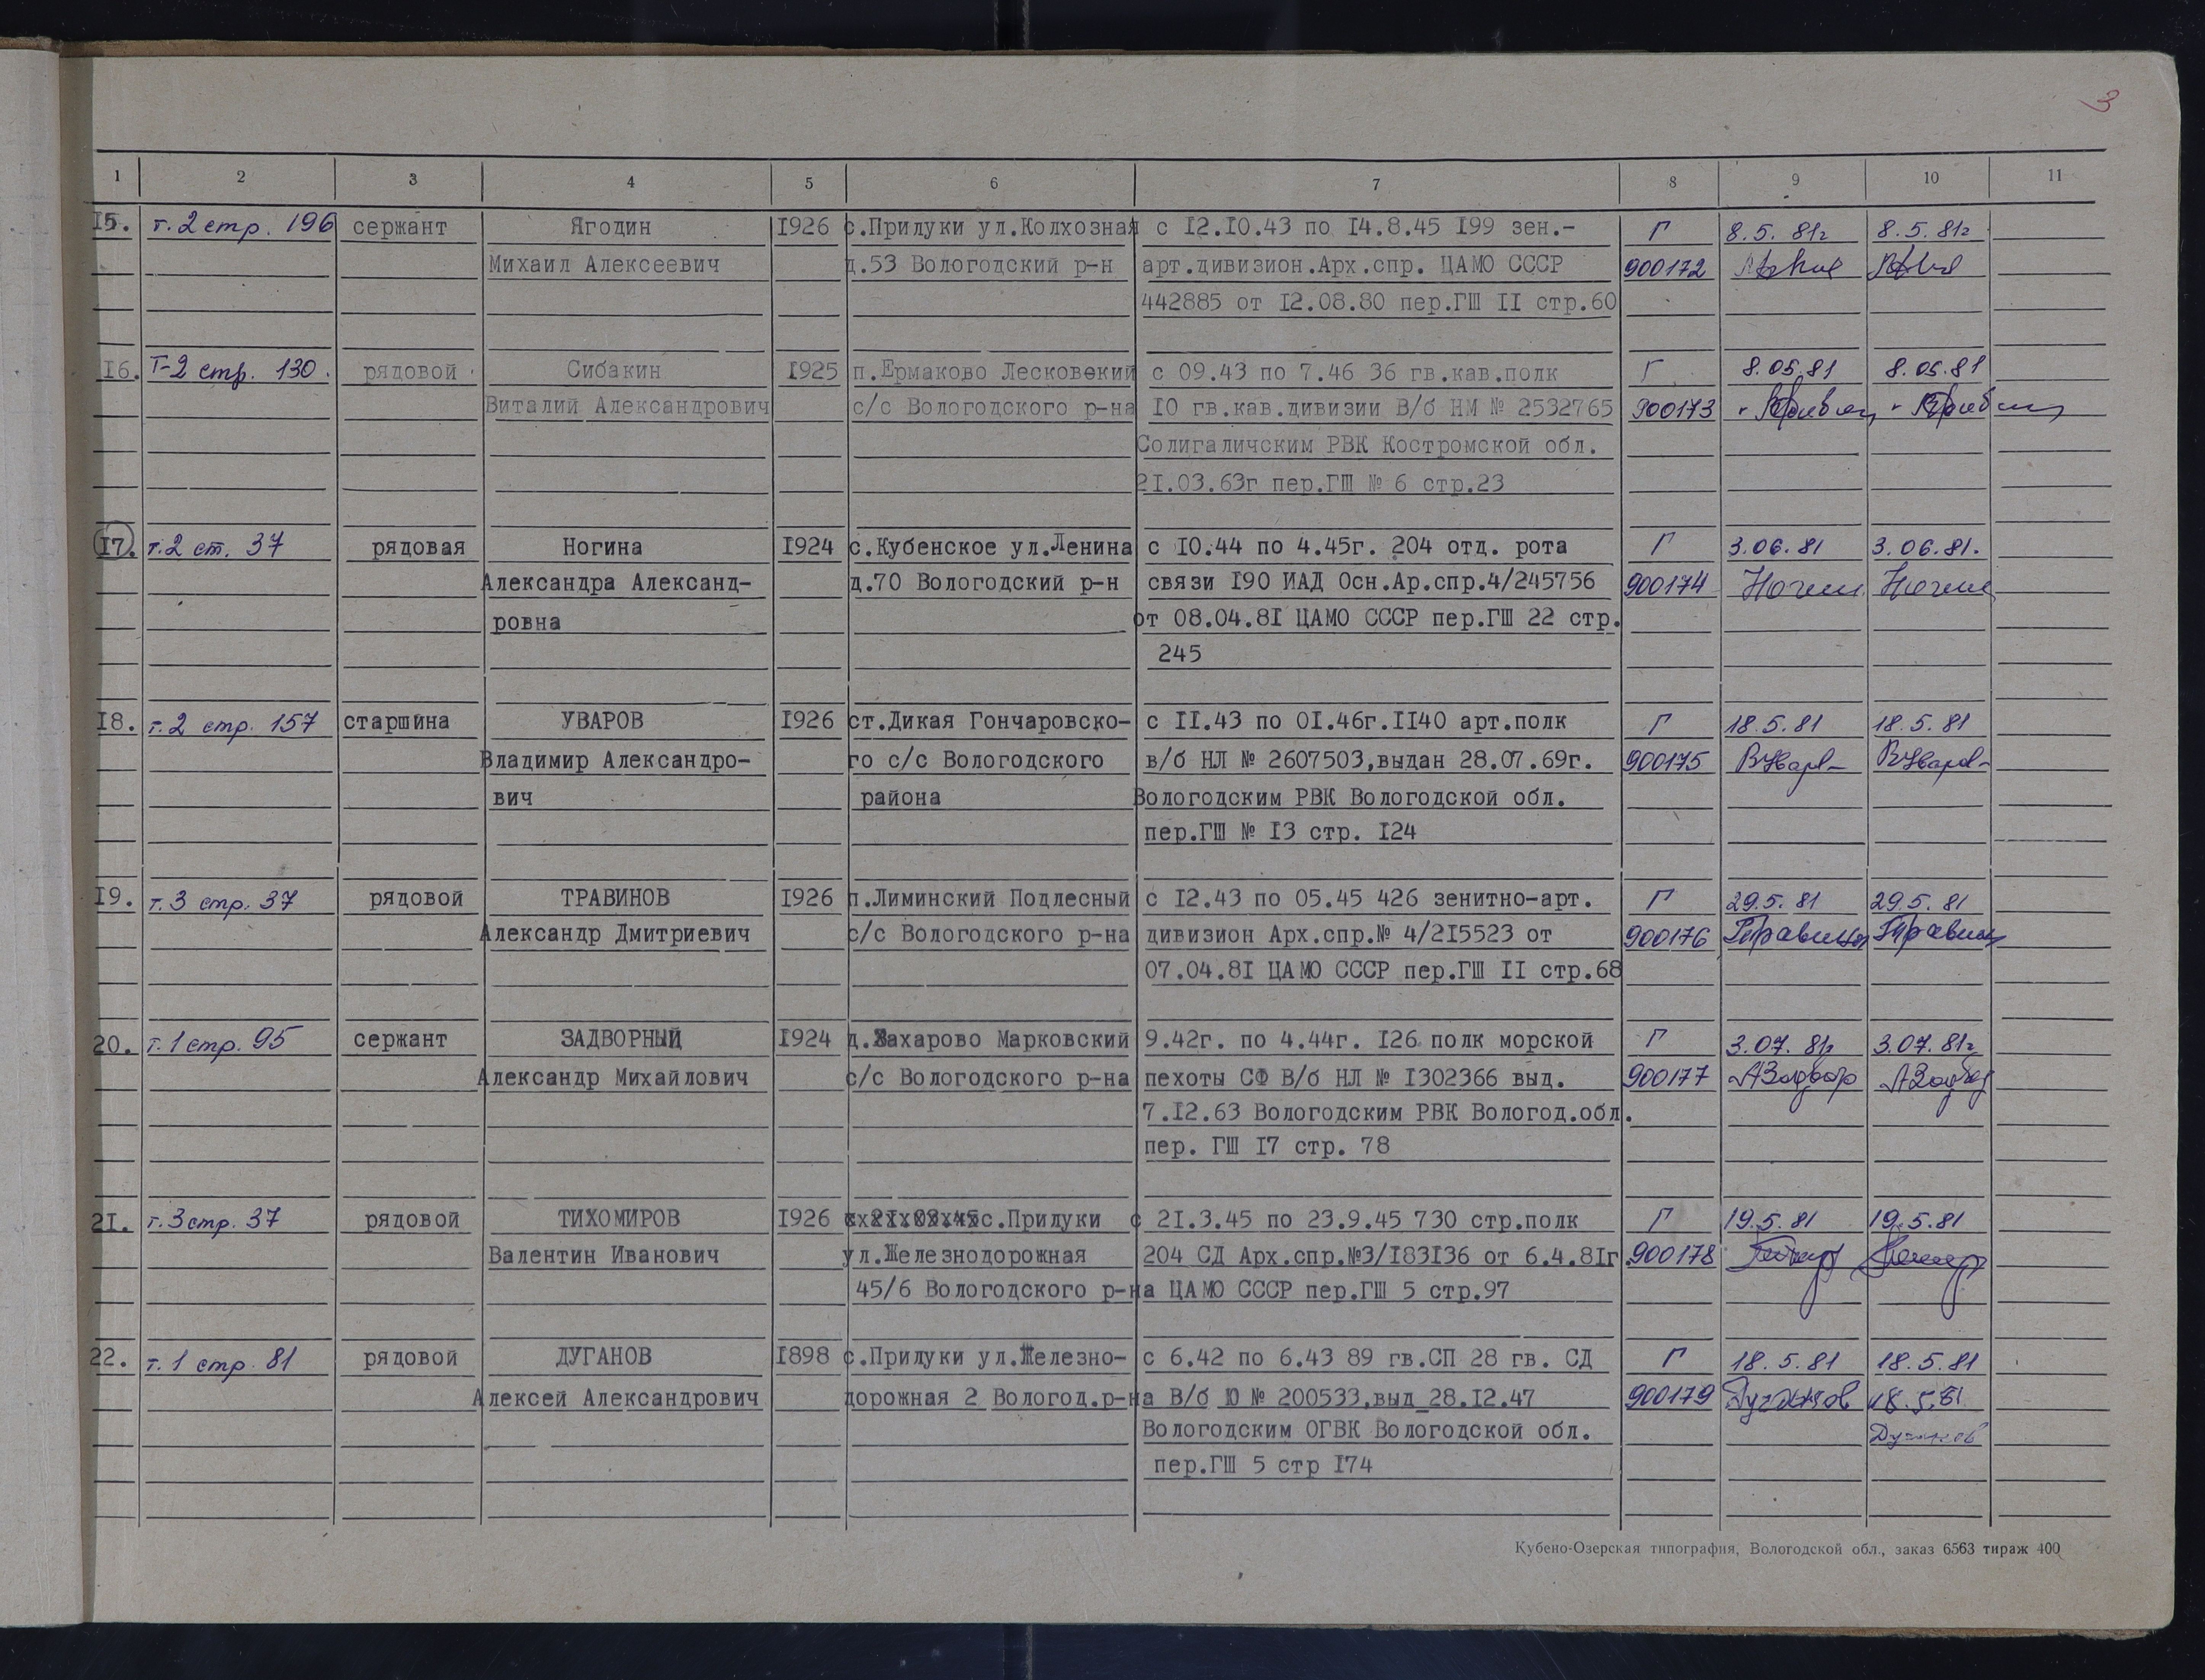 3
1 2 3 4 5 6 7 8 9 10 11
15. т.2 стр. 196 сержант Ягодин 1926 с.Прилуки ул.Колхозная с 12.10.43 по 14.8.45 199 зен.- Г 8.5.81г 8.5.81г
Михаил Алексеевич д.53 Вологодский р-н арт.дивизион.Арх.спр. ЦАМО СССР 900172
442885 от 12.08.80 пер.ГШ II стр.60
16. Т-2 стр. 130. рядовой Сибакин 1925 п.Ермаково Лесковский с 09.43 по 7.46 36 гв.кав.полк Г 8.05.81 8.05.81
Виталий Александрович с/с Вологодского р-на 10 гв.кав.дивизии В/б НМ № 2532765 900173
Солигаличским РВК Костромской обл.
21.03.63г пер.ГШ № 6 стр.23
17. т.2 ст. 37 рядовая Ногина 1924 с.Кубенское ул.Ленина с 10.44 по 4.45г. 204 отд. рота Г 3.06.81 3.06.81.
Александра Александ- д.70 Вологодский р-н связи 190 ИАД Осн.Ар.спр.4/245756 900174
ровна от 08.04.81 ЦАМО СССР пер.ГШ 22 стр.
245
18. т.2 стр. 157 старшина УВАРОВ 1926 ст.Дикая Гончаровско- с 11.43 по 01.46г.1140 арт.полк Г 18.5.81 18.5.81
Владимир Александро- го с/с Вологодского в/б НЛ № 2607503,выдан 28.07.69г. 900175 ВУваров ВУваров
вич района Вологодским РВК Вологодской обл.
пер.ГШ № 13 стр. 124
19. т.3 стр. 37 рядовой ТРАВИНОВ 1926 п.Лиминский Подлесный с 12.43 по 05.45 426 зенитно-арт. Г 29.5.81 29.5.81
Александр Дмитриевич с/с Вологодского р-на дивизион Арх.спр.№ 4/215523 от 900176
07.04.81 ЦАМО СССР пер.ГШ II стр.68
20. т.1 стр. 95 сержант ЗАДВОРНЫЙ 1924 д.Захарово Марковский 9.42г. по 4.44г. 126 полк морской Г 3.07.81г 3.07.81г
Александр Михайлович с/с Вологодского р-на пехоты СФ В/б НЛ № 1302366 выд. 900177
7.12.63 Вологодским РВК Вологод.обл.
пер. ГШ 17 стр. 78
21. т.3 стр. 37 рядовой ТИХОМИРОВ 1926 с.Прилуки с 21.3.45 по 23.9.45 730 стр.полк Г 19.5.81 19.5.81
Валентин Иванович ул.Железнодорожная 204 СД Арх.спр.№3/183136 от 6.4.81г. 900178
45/6 Вологодского р-на ЦАМО СССР пер.ГШ 5 стр.97
22. т.1 стр. 81 рядовой ДУГАНОВ 1898 с.Прилуки ул.Железно- с 6.42 по 6.43 89 гв.СП 28 гв. СД Г 18.5.81 18.5.81
Алексей Александрович дорожная 2 Вологод.р-на В/б Ю № 200533,выд 28.12.47 900179 Дуганов 18.5.81
Вологодским ОГВК Вологодской обл. Дуганов
пер.ГШ 5 стр 174
Кубено-Озерская типография, Вологодской обл., заказ 6563 тираж 400